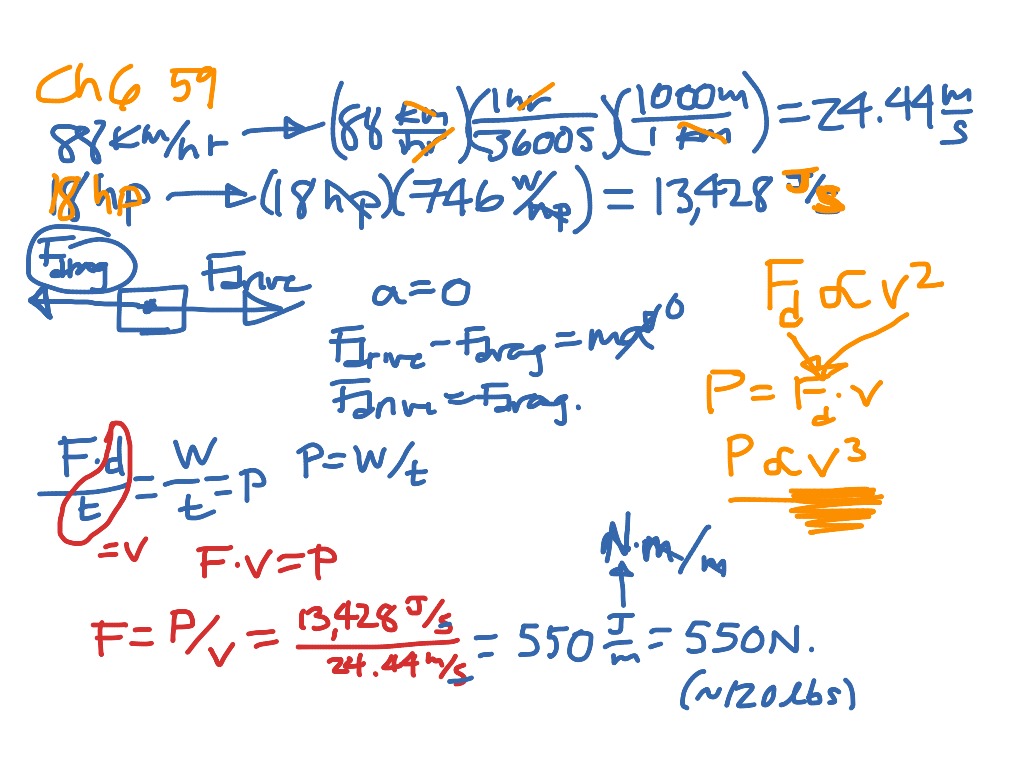 Ch 6 59
88 km/hr → (88 km/hr)(1 hr/3600 s)(1000 m/1 km) = 24.44 m/s
18 hp → (18 hp)(746 W/hp) = 13,428 J/s
Fdrag Fdrive a = 0
Fdrive - Fdrag = ma 0
Fdrive = Fdrag.
Fd ∝ v²
P = Fd · v
P ∝ v³
F·d/t = W/t = P P = W/t
= v F·v = P
N·m/m
F = P/v = 13,428 J/s / 24.44 m/s = 550 J/m = 550 N.
(~120 lbs)